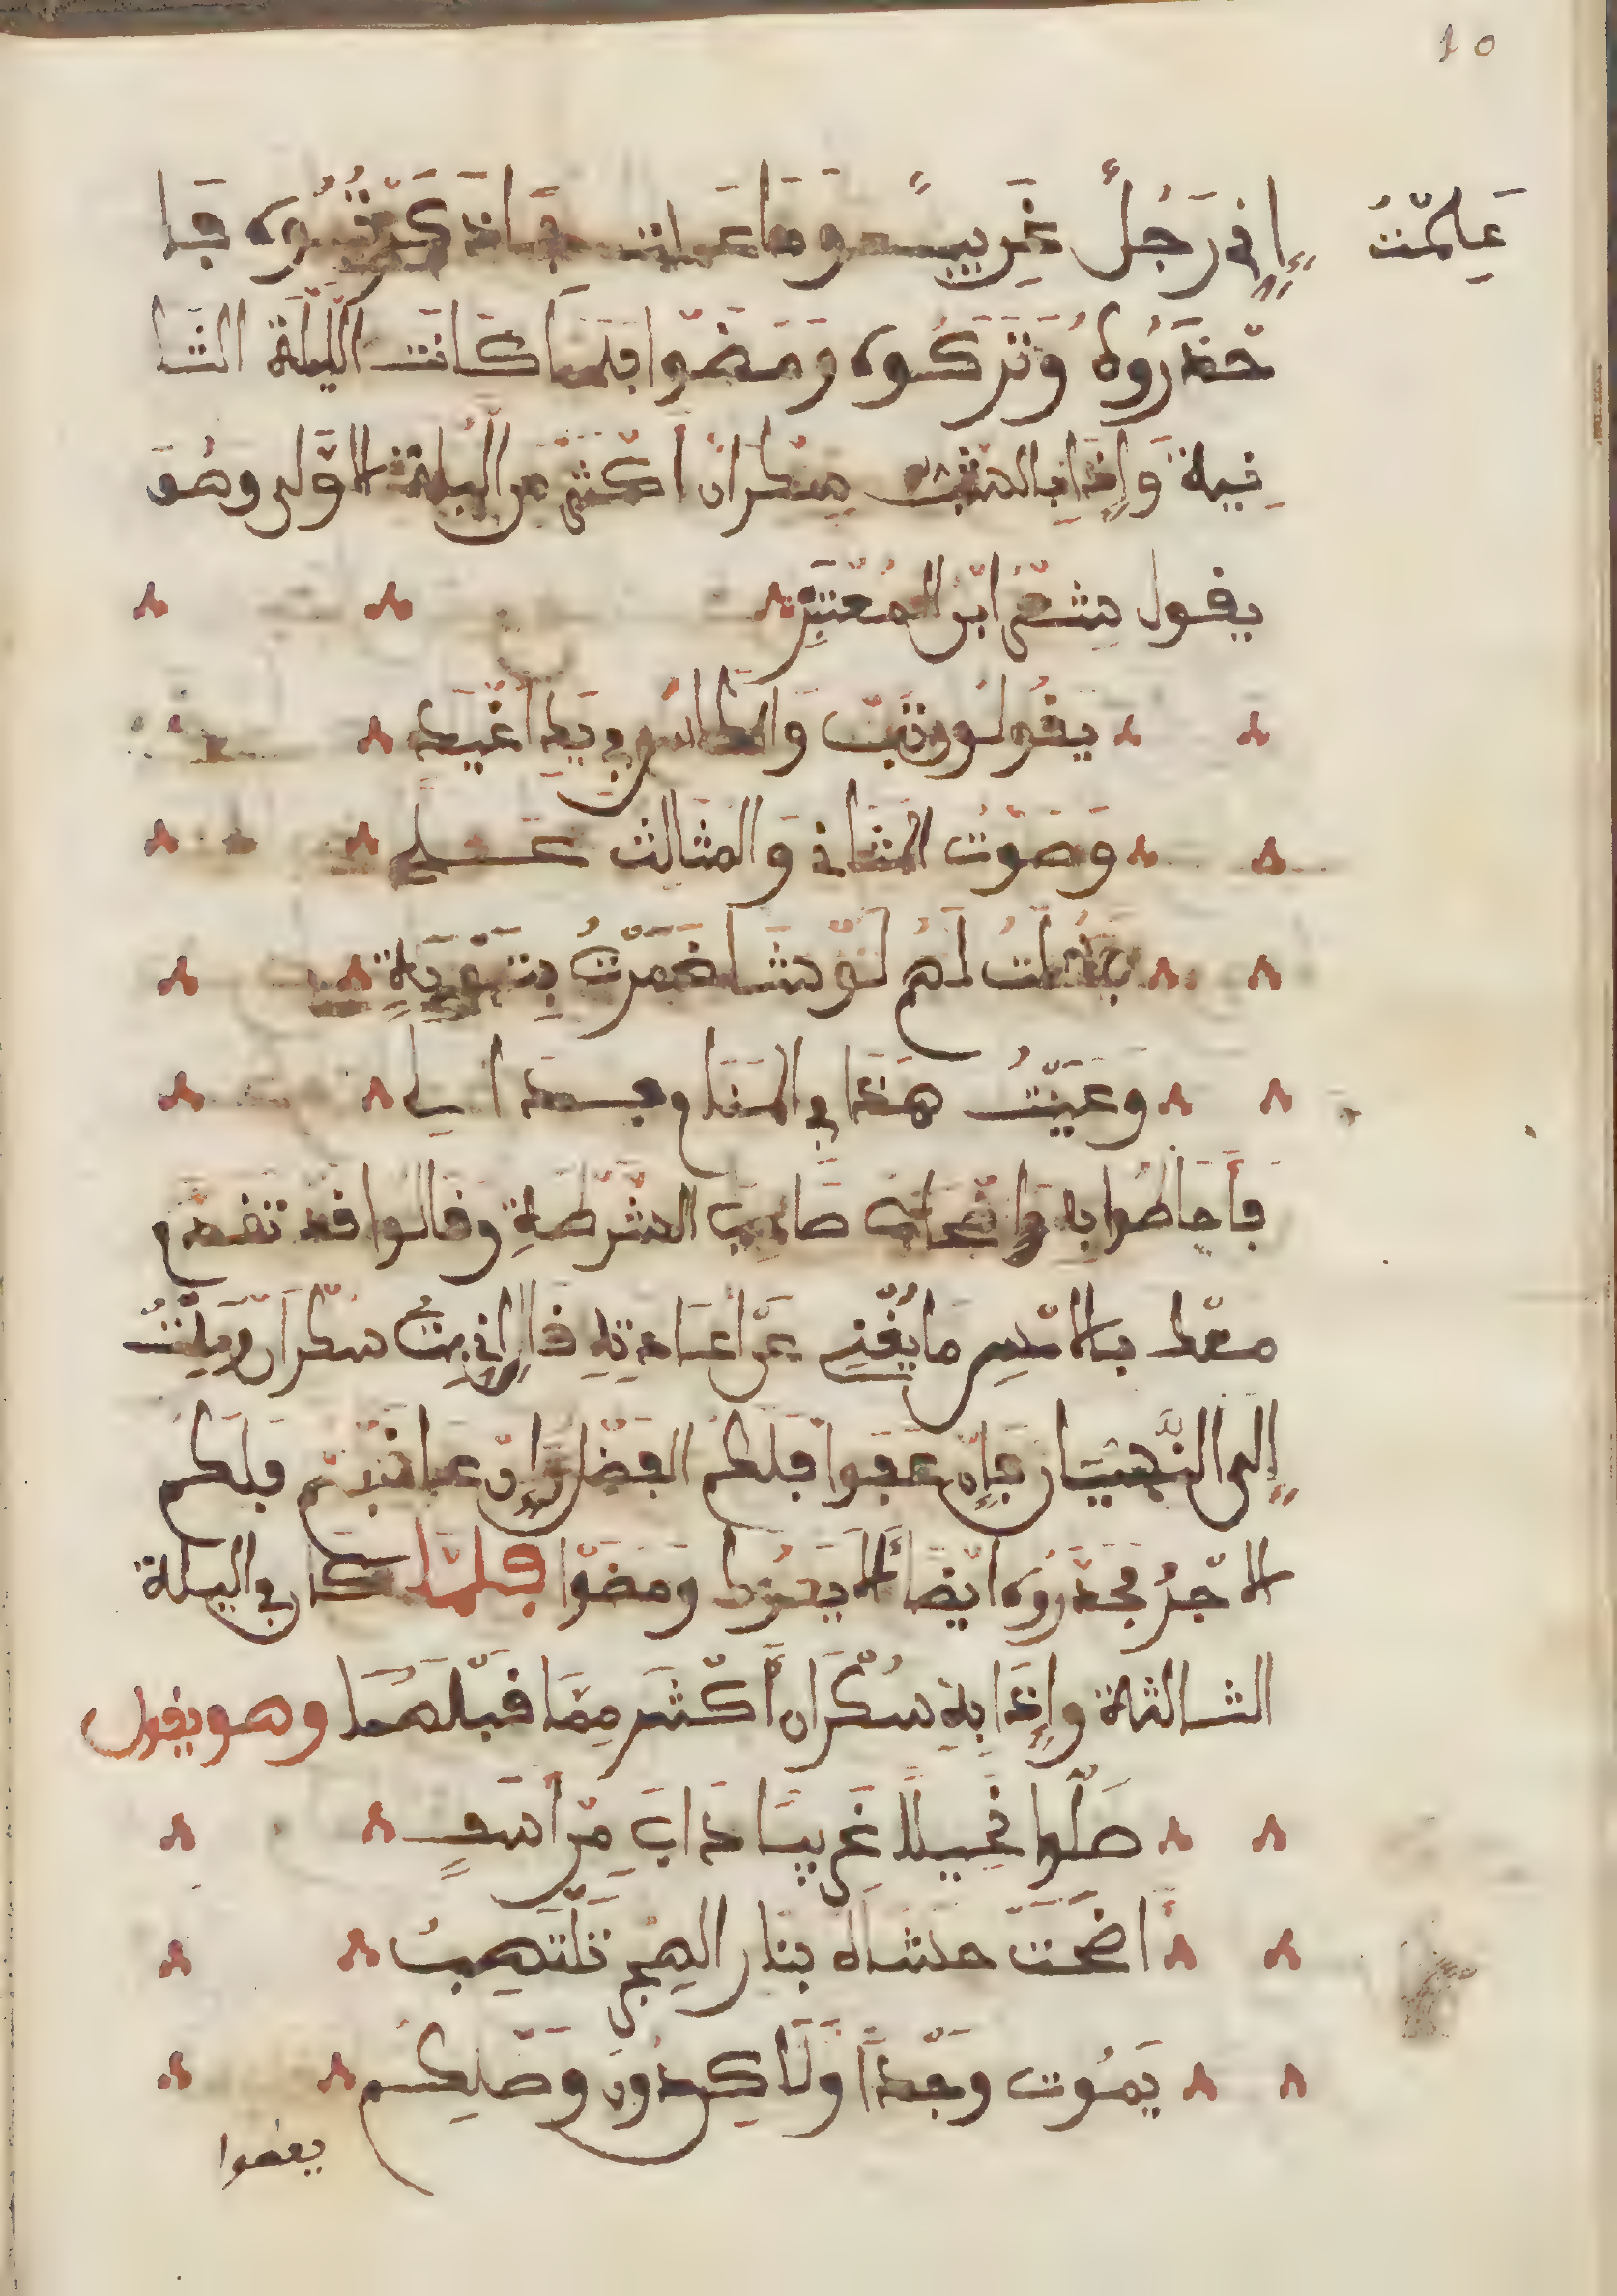 10
إني رَجُلٌ غَرِيبٌ وَمَا عَلِمْتُ مَا ذَكَرْتُمُوه فَلا عَلِمْتُ
حذَرُوهُ وَتَرَكُوه وَمَضَوْا فلمَّا كَانَت اللَّيْلَة الثَا
نِية وَإِذَا بِالشَّيْخ سكران أكثر من اليلة الاوّلى وهُوَ
يقول شعر ابن المُعْتَزِّ
يقُولُون تُبْ وَالكاسُ في يَد أغْيَد
وَصَوْتُ المثَاني وَالمثالث عَــلي
فَقُلتُ لَهُم لَوْ كُنتُ أضمرْتُ بِتَوْبَةٍ
وعَيَنْتُ هَذَا في المنَام بــدا لــي
فأحَاطُوا بِه وَأعوان صَاحِبِ الشُرْطَةِ وقَالوا قد تقدم
معك بالامْسِ ما يُغْني عَنْ اعَادَتِهِ قال إِني بِتُّ سكْرَان ومِلْتُ
إِلى النِّسْيَان فَإِن عَفَوا فلَكُم الفَضْل وَإِن عَاقَبْتُم فلَكُم
الاجْرُ فحَذرُوه ايْضَاً ألا يَعُود ومَضَوْا فلمَّا كان في اليلة
الثالثة وإِذَا بِهِ سُكْرَان أكْثَر مِمَّا قَبْلهما وهو يقول
صِلُوا نحِيلاً غَرِيبًا ذَابَ مِنْ أسَفٍ
أضْحَتْ حشَاهُ بِنَار الهجْر تَلْتَهِبُ
يَمُوت وَجْداً وَلَا كِن دُونَ وَصْلِكُم
يعضوا